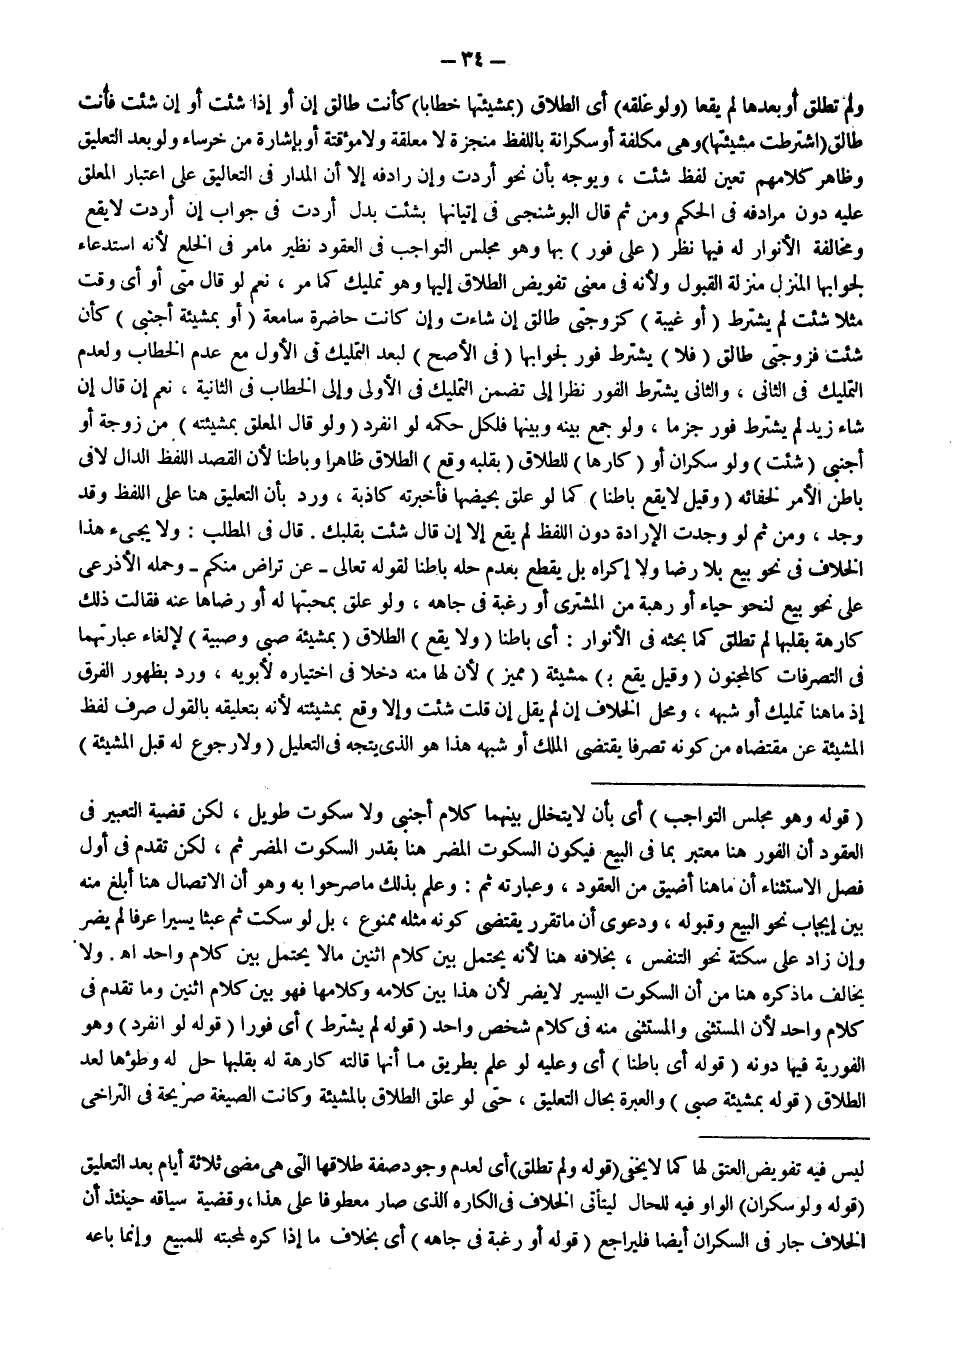 - ٣٤ -
ولم تطلق أو بعدها لم يقعا (ولو علقه) أى الطلاق (بمشيئتها خطابا) كأنت طالق إن أو إذا شئت أو إن شئت فأنت
طالق (اشترطت مشيئتها) وهى مكلفة أو سكرانة باللفظ منجزة لا معلقة ولا مؤقتة أو بإشارة من خرساء ولو بعد التعليق
وظاهر كلامهم تعين لفظ شئت ، ويوجه بأن نحو أردت وإن رادفه إلا أن المدار فى التعاليق على اعتبار المعلق
عليه دون مرادفه فى الحكم ومن ثم قال البوشنجى فى إتيانها بشئت بدل أردت فى جواب إن أردت لا يقع
ومخالفة الأنوار له فيها نظر ( على فور ) بها وهو مجلس التواجب فى العقود نظير مامر فى الخلع لأنه استدعاء
لجوابها المنزل منزلة القبول ولأنه فى معنى تفويض الطلاق إليها وهو تمليك كما مر ، نعم لو قال متى أو أى وقت
مثلا شئت لم يشترط ( أو غيبة ) كزوجتى طالق إن شاءت وإن كانت حاضرة سامعة ( أو بمشيئة أجنبى ) كأن
شئت فزوجتى طالق ( فلا ) يشترط فور لجوابها ( فى الأصح ) لبعد التمليك فى الأول مع عدم الخطاب ولعدم
التمليك فى الثانى ، والثانى يشترط الفور نظرا إلى تضمن التمليك فى الأولى وإلى الخطاب فى الثانية ، نعم إن قال إن
شاء زيد لم يشترط فور جزما ، ولو جمع بينه وبينها فلكل حكمه لو انفرد ( ولو قال المعلق بمشيئته ) من زوجة أو
أجنبى ( شئت ) ولو سكران أو ( كارها ) للطلاق ( بقلبه وقع ) الطلاق ظاهرا وباطنا لأن القصد اللفظ الدال لافى
باطن الأمر لخفائه ( وقيل لايقع باطنا ) كما لو علق بحيضها فأخبرته كاذبة ، ورد بأن التعليق هنا على اللفظ وقد
وجد ، ومن ثم لو وجدت الإرادة دون اللفظ لم يقع إلا إن قال شئت بقلبك . قال فى المطلب : ولا يجىء هذا
الخلاف فى نحو بيع بلا رضا ولا إكراه بل يقطع بعدم حله باطنا لقوله تعالى ـ عن تراض منكم ـ وحمله الأذرعى
على نحو بيع لنحو حياء أو رهبة من المشترى أو رغبة فى جاهه ، ولو علق بمحبتها له أو رضاها عنه فقالت ذلك
كارهة بقلبها لم تطلق كما بحثه فى الأنوار : أى باطنا ( ولا يقع ) الطلاق ( بمشيئة صبى وصبية ) لإلغاء عبارتهما
فى التصرفات كالمجنون ( وقيل يقع بـ ) ـمشيئة ( مميز ) لأن لها منه دخلا فى اختياره لأبويه ، ورد بظهور الفرق
إذ ماهنا تمليك أو شبهه ، ومحل الخلاف إن لم يقل إن قلت شئت وإلا وقع بمشيئته لأنه بتعليقه بالقول صرف لفظ
المشيئة عن مقتضاه من كونه تصرفا يقتضى الملك أو شبهه هذا هو الذى يتجه فى التعليل ( ولا رجوع له قبل المشيئة )
( قوله وهو مجلس التواجب ) أى بأن لايتخلل بينهما كلام أجنبى ولا سكوت طويل ، لكن قضية التعبير فى
العقود أن الفور هنا معتبر بما فى البيع فيكون السكوت المضر هنا بقدر السكوت المضر ثم ، لكن تقدم فى أول
فصل الاستثناء أن ماهنا أضيق من العقود ، وعبارته ثم : وعلم بذلك ماصرحوا به وهو أن الاتصال هنا أبلغ منه
بين إيجاب نحو البيع وقبوله ، ودعوى أن ماتقرر يقتضى كونه مثله ممنوع ، بل لو سكت ثم عبثا يسيرا عرفا لم يضر
وإن زاد على سكتة نحو التنفس ، بخلافه هنا لأنه يحتمل بين كلام اثنين مالا يحتمل بين كلام واحد اهـ . ولا
يخالف ماذكره هنا من أن السكوت اليسير لايضر لأن هذا بين كلامه وكلامها فهو بين كلام اثنين وما تقدم فى
كلام واحد لأن المستثنى والمستثنى منه فى كلام شخص واحد ( قوله لم يشترط ) أى فورا ( قوله لو انفرد ) وهو
الفورية فيها دونه ( قوله أى باطنا ) أى وعليه لو علم بطريق مـا أنها قالته كارهة له بقلبها حل له وطؤها لعد
الطلاق ( قوله بمشيئة صبى ) والعبرة بحال التعليق ، حتى لو علق الطلاق بالمشيئة وكانت الصيغة صريحة فى التراخى
ليس فيه تفويض العتق لها كما لايخفى (قوله ولم تطلق) أى لعدم وجود صفة طلاقها التى هى مضى ثلاثة أيام بعد التعليق
(قوله ولو سكران) الواو فيه للحال ليتأتى الخلاف فى الكاره الذى صار معطوفا على هذا ، وقضية سياقه حينئذ أن
الخلاف جار فى السكران أيضا فليراجع ( قوله أو رغبة فى جاهه ) أى بخلاف ما إذا كره لمحبته للمبيع وإنما باعه